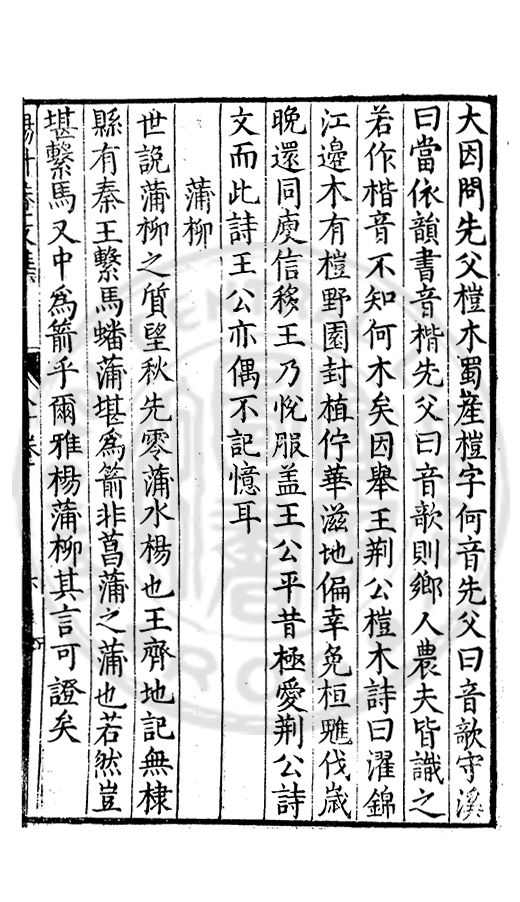 大因問先父榿木蜀産榿字何音先父曰音歌守溪
曰當依韻書音楷先父曰音歌則鄉人農夫皆識之
若作楷音不知何木矣因舉王荆公榿木詩曰濯錦
江邊木有榿野園封植佇華滋地偏幸免桓魋伐歲
晚還同庾信移王乃悅服盖王公平昔極愛荆公詩
文而此詩王公亦偶不記憶耳
蒲柳
世說蒲柳之質望秋先零蒲水楊也王齊地記無棣
縣有秦王繫馬蟠蒲堪爲箭非菖蒲之蒲也若然豈
堪繫馬又中爲箭乎爾雅楊蒲柳其言可證矣